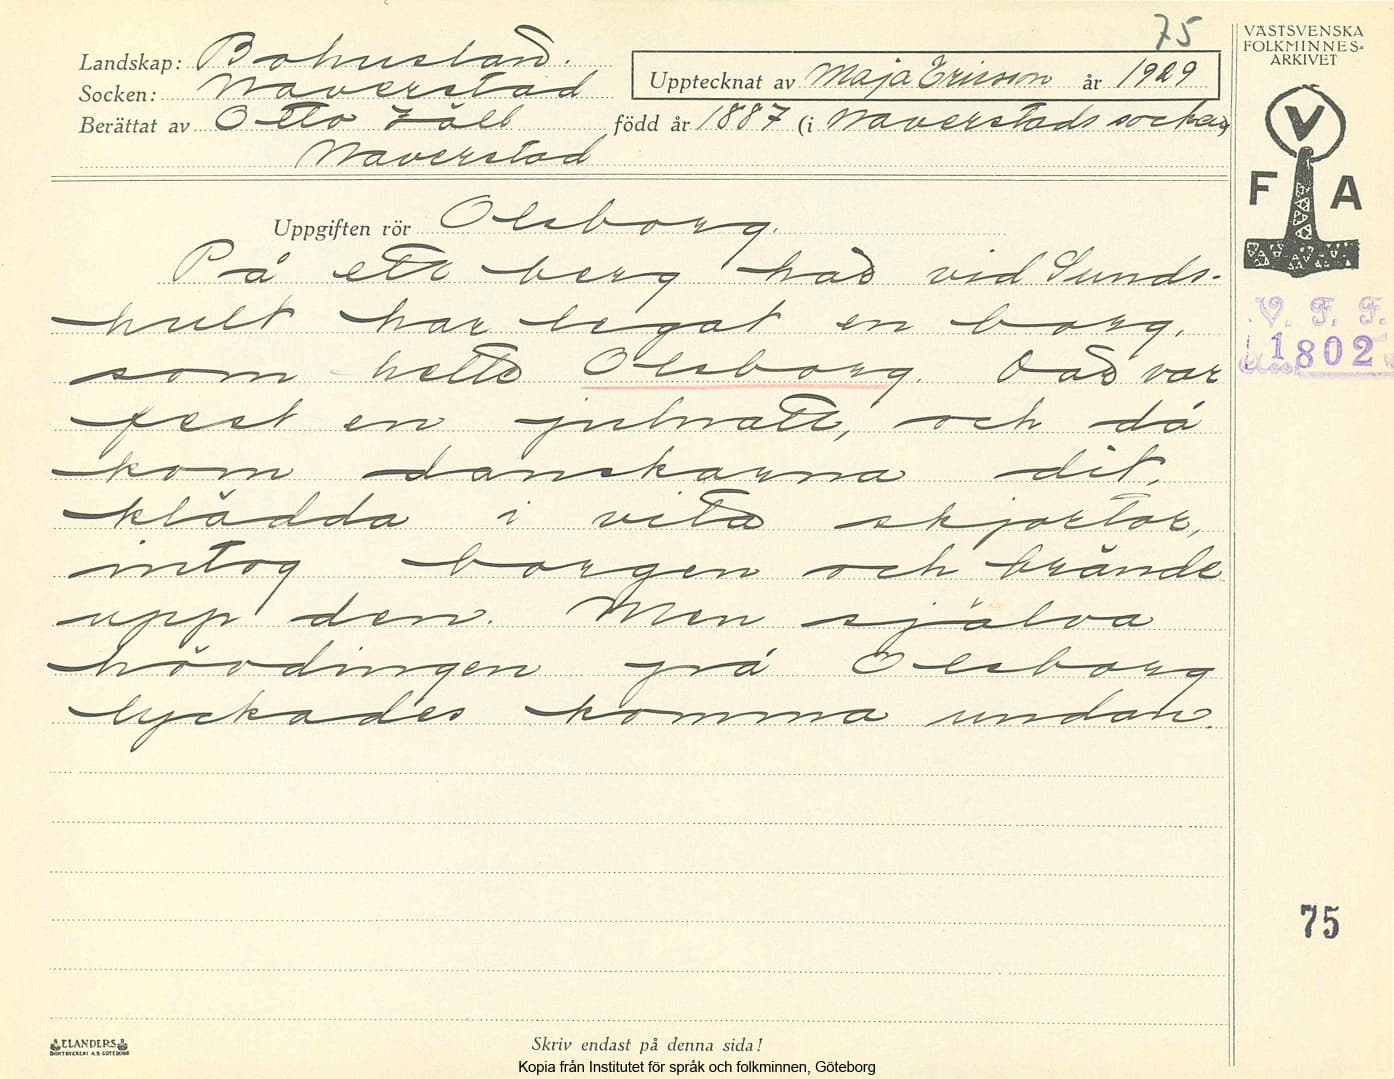 75
Landskap: Bohuslän.
Socken: Naverstad
Berättat av Otto Zäll
Upptecknat av Maja Ericsson år 1929
född år 1887 (i Naverstads socken
Naverstad
VÄSTSVENSKA
FOLKMINNES=
ARKIVET
V
F A
V. F. F.
1802
Uppgiften rör Olsborg.
På ett berg häd vid Sunds-
hult har legat en borg,
som hette Olsborg. Dä var
fest en julnatt, och då
kom danskarna dit,
klädda i vita skjortor,
intog borgen och brände
upp den. Men själva
hövdingen på Olsborg
lyckades komma undan.
75
ELANDERS
BOKTRYCKERI A.B. GÖTEBORG
Skriv endast på denna sida!
Kopia från Institutet för språk och folkminnen, Göteborg